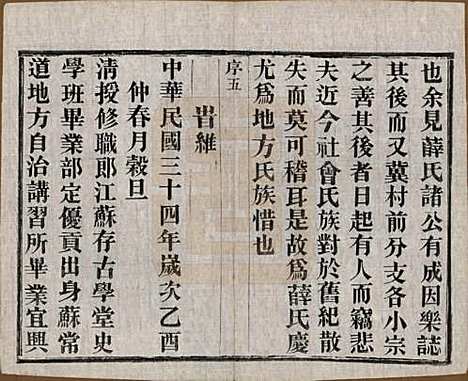 也余見薛氏諸公有成因樂誌
其後而又冀村前分支各小宗
之善其後者日起有人而竊悲
夫近今社會氏族對於舊紀散
失而莫可稽耳是故爲薛氏慶
尤爲地方氏族惜也
序五
旹維
中華民國三十四年歲次乙酉
仲春月穀旦
清授修職郎江蘇存古學堂史
學班畢業部定優貢出身蘇常
道地方自治講習所畢業宜興